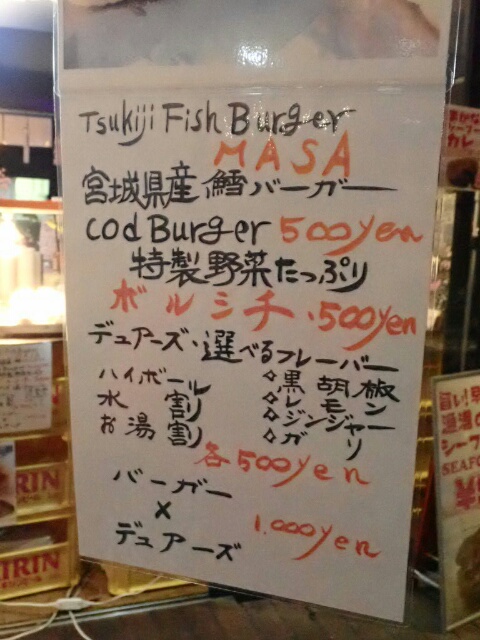 Tsukiji Fish Burger
MASA
宮城県産鱈バーガー
cod Burger 500yen
特製野菜たっぷり
ボルシチ・500yen
デュアーズ・選べるフレーバー
ハイボール ◇黒胡椒
水割り ◇レモン
お湯割り ◇ジンジャー
◇ガリ
各500yen
バーガー
×
デュアーズ 1,000yen
KIRIN
KIRIN
SEAFO